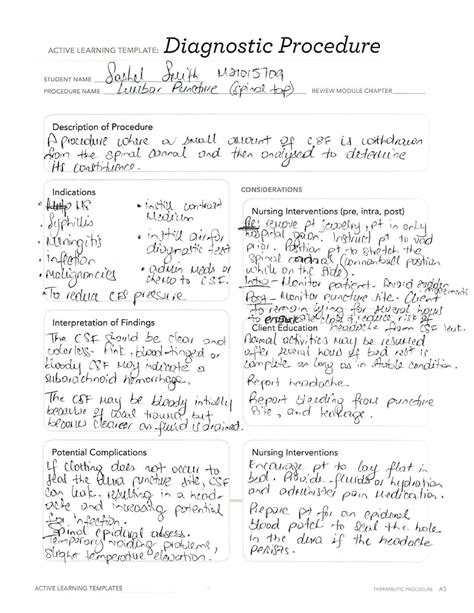 ACTIVE LEARNING TEMPLATE: Diagnostic Procedure
STUDENT NAME Smith M21015709
PROCEDURE NAME Lumbar Puncture (spinal tap) REVIEW MODULE CHAPTER
Description of Procedure
A procedure where a small amount of CSF is withdrawn
from the spinal canal and then analysed to determine
its constituence.
Indications
• MS
• Syphillis
• Meningitis
• Infection
• Malignancies
• To reduce CFS pressure
• instill contrast
Medium
• instill air for
diagnostic test
• admin meds or
chemo to CSF.
CONSIDERATIONS
Nursing Interventions (pre, intra, post)
Pre: remove pt jewelry, pt in only
hospital gown. Instruct pt to void
prior. Position pt to stretch the
spinal canal (cannonball position
while on the side).
Intra - Monitor patient. Avoid movements
Post - Monitor puncture site. Client
to remain lying for several hours
to reduce risk of
headache from CSF leak.
Interpretation of Findings
The CSF should be clear and
colorless. Pink, blood-tinged or
bloody CSF may indicate a
subarachnoid hemorrhage.
The CSF may be bloody initially
because of local trauma but
becomes clearer as fluid is drained.
Client Education
Normal activities may be resumed
after several hours of bed rest is
complete as long as in stable condition.
Report headache.
Report bleeding from puncture
site, and leakage.
Potential Complications
If clotting does not occur to
seal the dura puncture site, CSF
can leak, resulting in a head-
ache and increasing potential
for infection.
Spinal epidural abscess.
Temporary voiding problems,
slight temperature elevation.
Nursing Interventions
Encourage pt to lay flat in
bed. Provide fluids for hydration
and administer pain medication.
Prepare pt for an epidural
blood patch to seal the hole
in the dura if the headache
persists.
ACTIVE LEARNING TEMPLATES THERAPEUTIC PROCEDURE A3